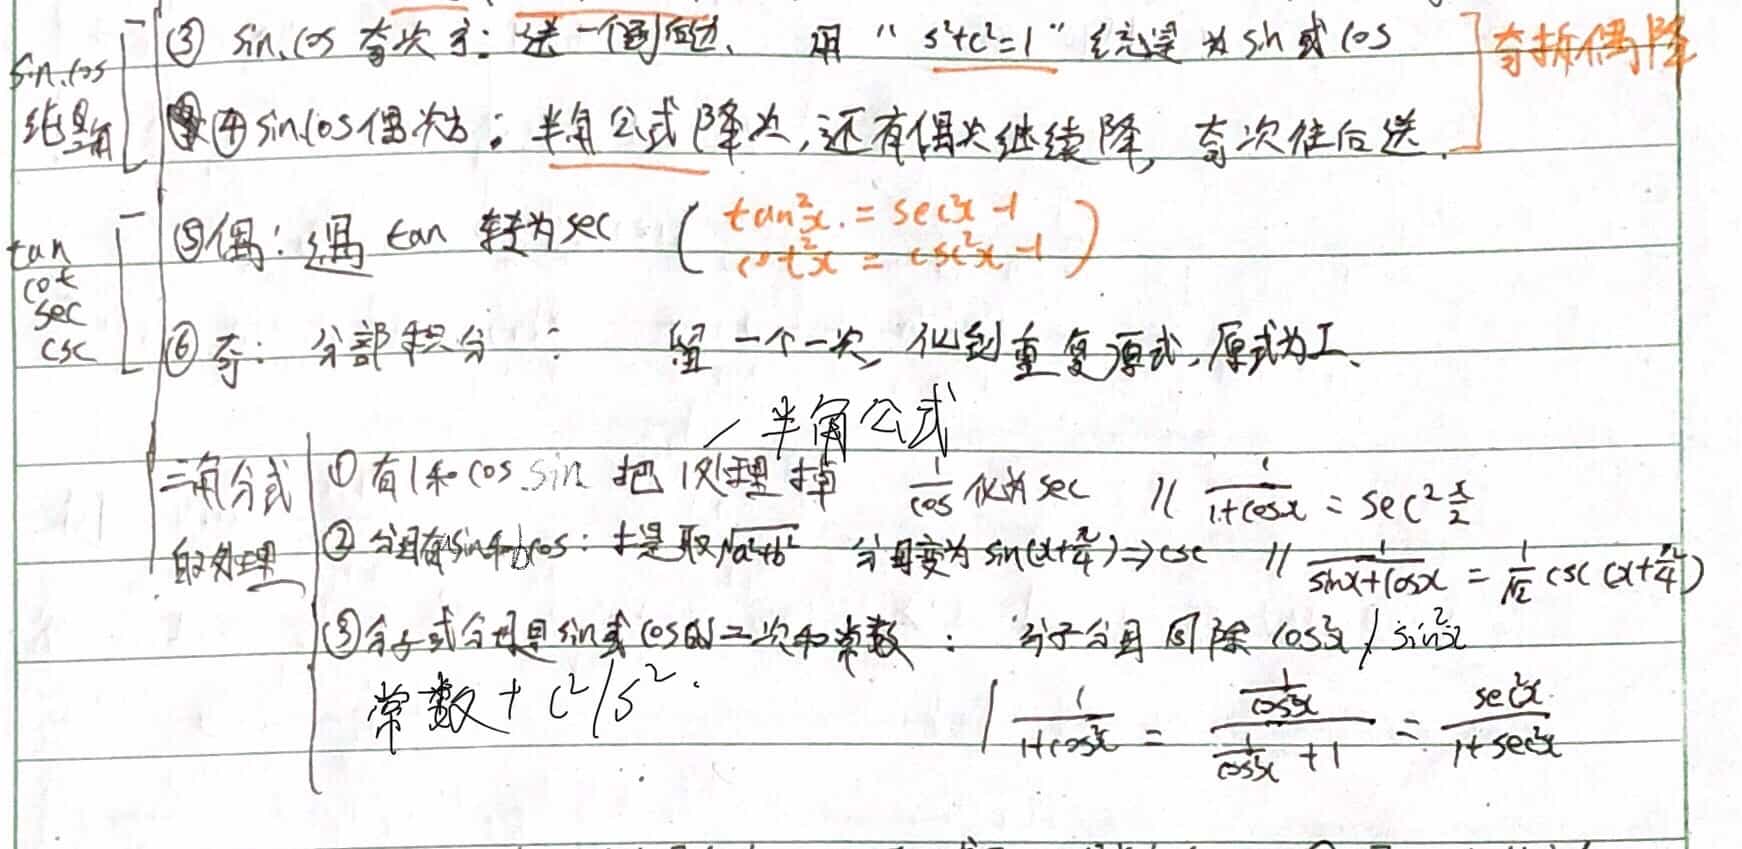 sin.cos 纯三角
③ sin.cos 奇次方：送一个到后边、 用“s²+c²=1”统一 为 sin 或 cos
④ sin cos 偶次方：半角公式降次，还有偶次继续降，奇次往后送.
奇拆偶降
tan cot sec csc
⑤偶：遇 tan 转为 sec ( tan²x. = sec²x -1
cot²x = csc²x -1 )
⑥ 奇： 分部积分： 留一个一次，化到重复原式，原式为 I、
半角公式
三角分式的处理
① 有 1 和 cos sin 把 1 处理掉 1/cos 化为 sec // 1/(1+cosx) = sec² x/2
② 分母有 sin 和 cos：提取 √(a²+b²) 分母变为 sin(x+π/4) ⇒ csc // 1/(sinx+cosx) = 1/√2 csc (x+π/4)
③ 分子或分母是 sin 或 cos 的二次和常数： 分子分母同除 cos²x / sin²x
常数 + c²/s².
/ 1/(1+cos²x) = (1/cos²x)/(1/cos²x + 1) = sec²x/(1+sec²x)